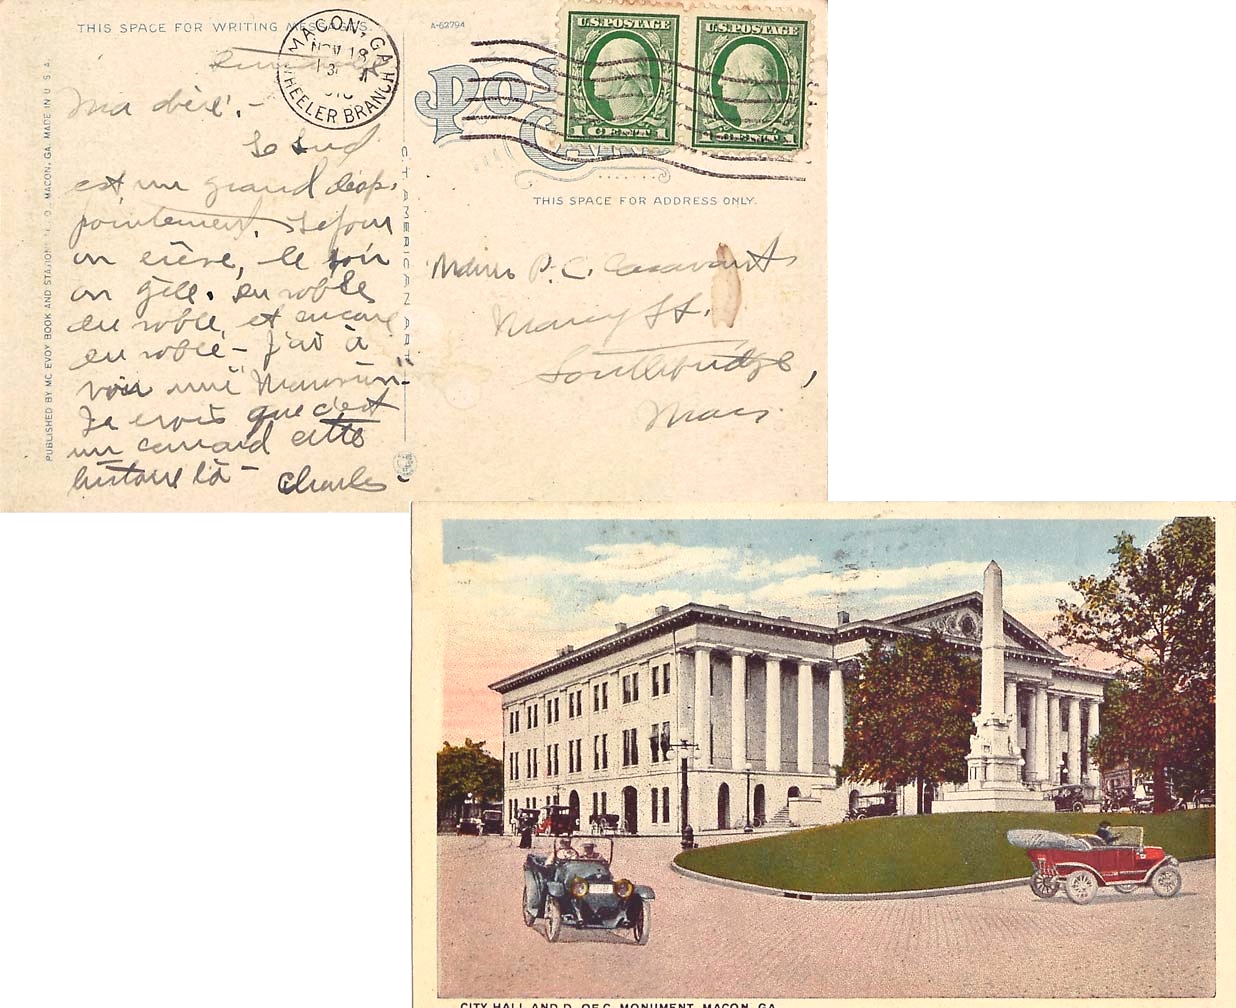 THIS SPACE FOR WRITING MESSAGES.
A-62794
MACON, GA.
NOV 18
WHEELER BRANCH
U.S. POSTAGE
U.S. POSTAGE
1 CENT 1
1 CENT 1
POST
CARD
THIS SPACE FOR ADDRESS ONLY.
PUBLISHED BY MC EVOY BOOK AND STATIONERY CO., MACON, GA. MADE IN U.S.A.
C.T. AMERICAN ART
Dimanche
Ma chère, -
Le Sud
est un grand désap-
pointement. Le jour
on crève, le soir
on gèle. Du sable
du sable, et encore
du sable - J'ai à
voir une "Maison"-
Je crois que c'est
un canard cette
histoire là - Charles.
P. C. Casavant
Marcy St.
Southbridge,
Mass.
CITY HALL AND D. OF C. MONUMENT, MACON, GA.